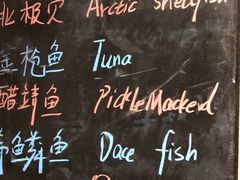 北极贝 Arctic Shellfish
金枪鱼 Tuna
醋鲭鱼 Pickle Mackerel
鱼鳞鱼 Dace fish